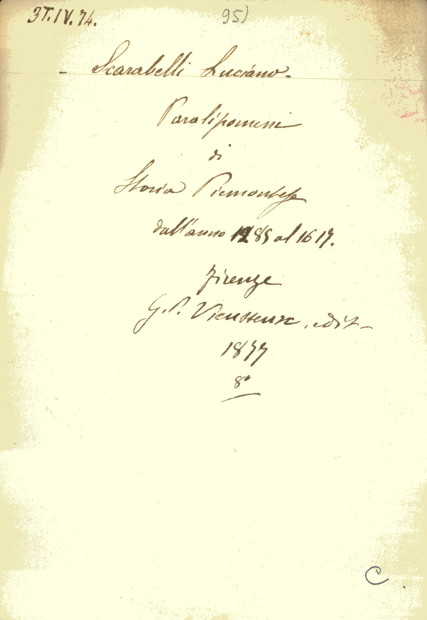 3T.IV.74.
95)
Scarabelli Luciano.
Paralipomeni
di
Storia Piemontese
dall'anno 1285 al 1617.
Firenze
G. P. Vieusseux, edit
1847
8°
C